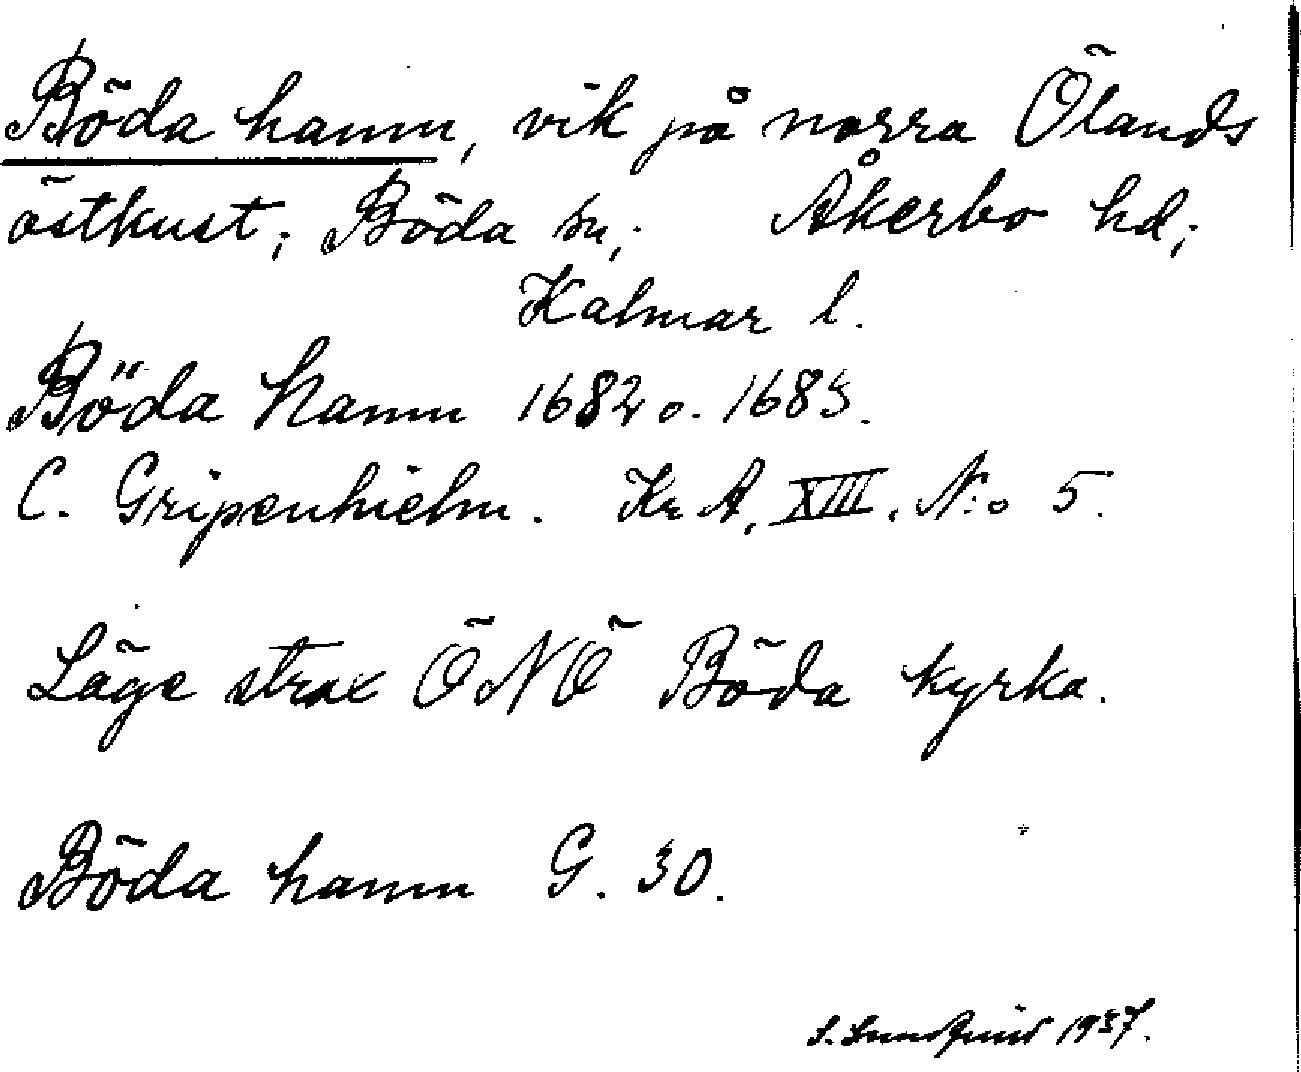 Böda hamn, vik på norra Ölands
östkust; Böda sn; Åkerbo hd;
Kalmar l.
Böda hamn 1682 o. 1683.
C. Gripenhielm. Kr A, XIII. N:o 5.
Läge strax ÖNÖ Böda kyrka.
Böda hamn G. 30.
S. Sundqvist 1937.